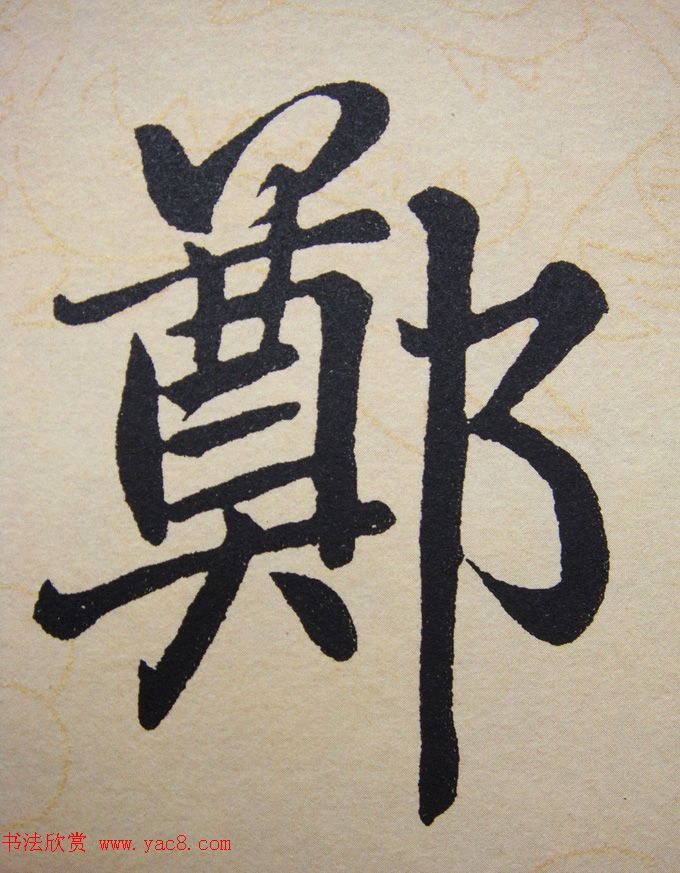 鄭
书法欣赏 www.yac8.com